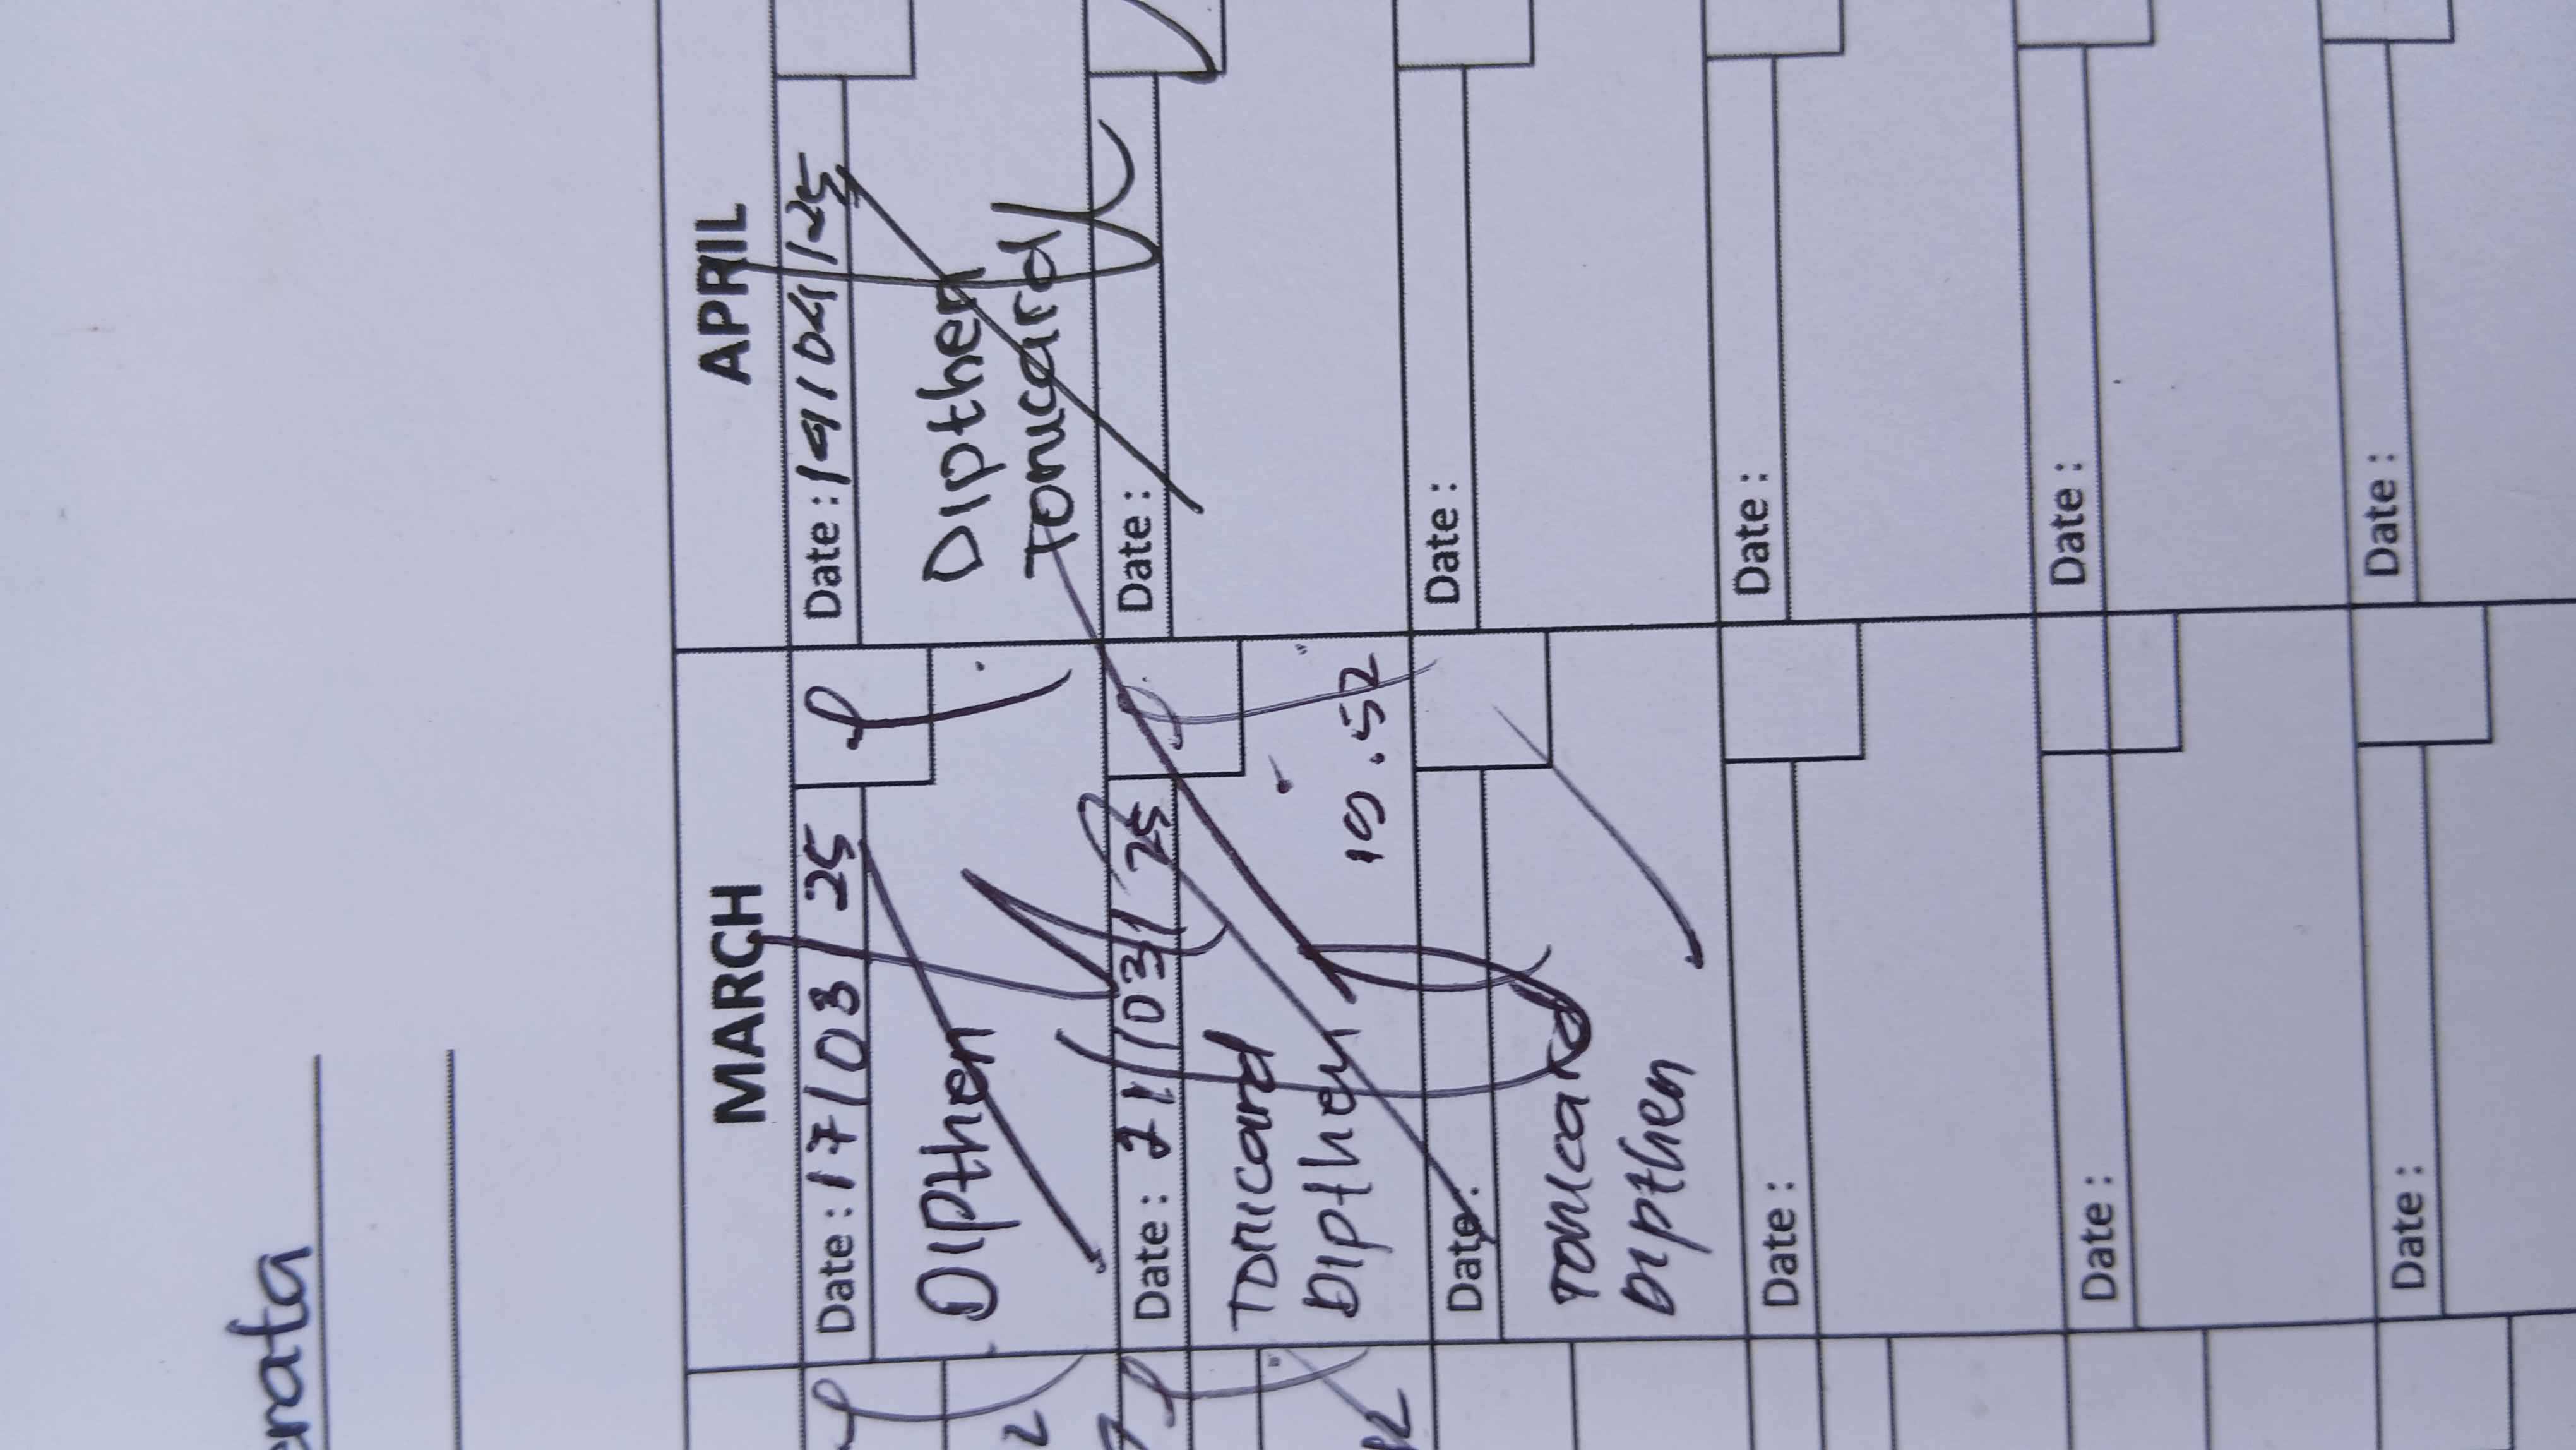 erata
MARCH
Date : 17/03 25
Dipthen
Date : 21/03/25
Tonicard
Dipthen
19.52
Date :
Tonicard
Dipthen
Date :
Date :
Date :
APRIL
Date : 19/04/25
Dipthen
Tonicard
Date :
Date :
Date :
Date :
Date :